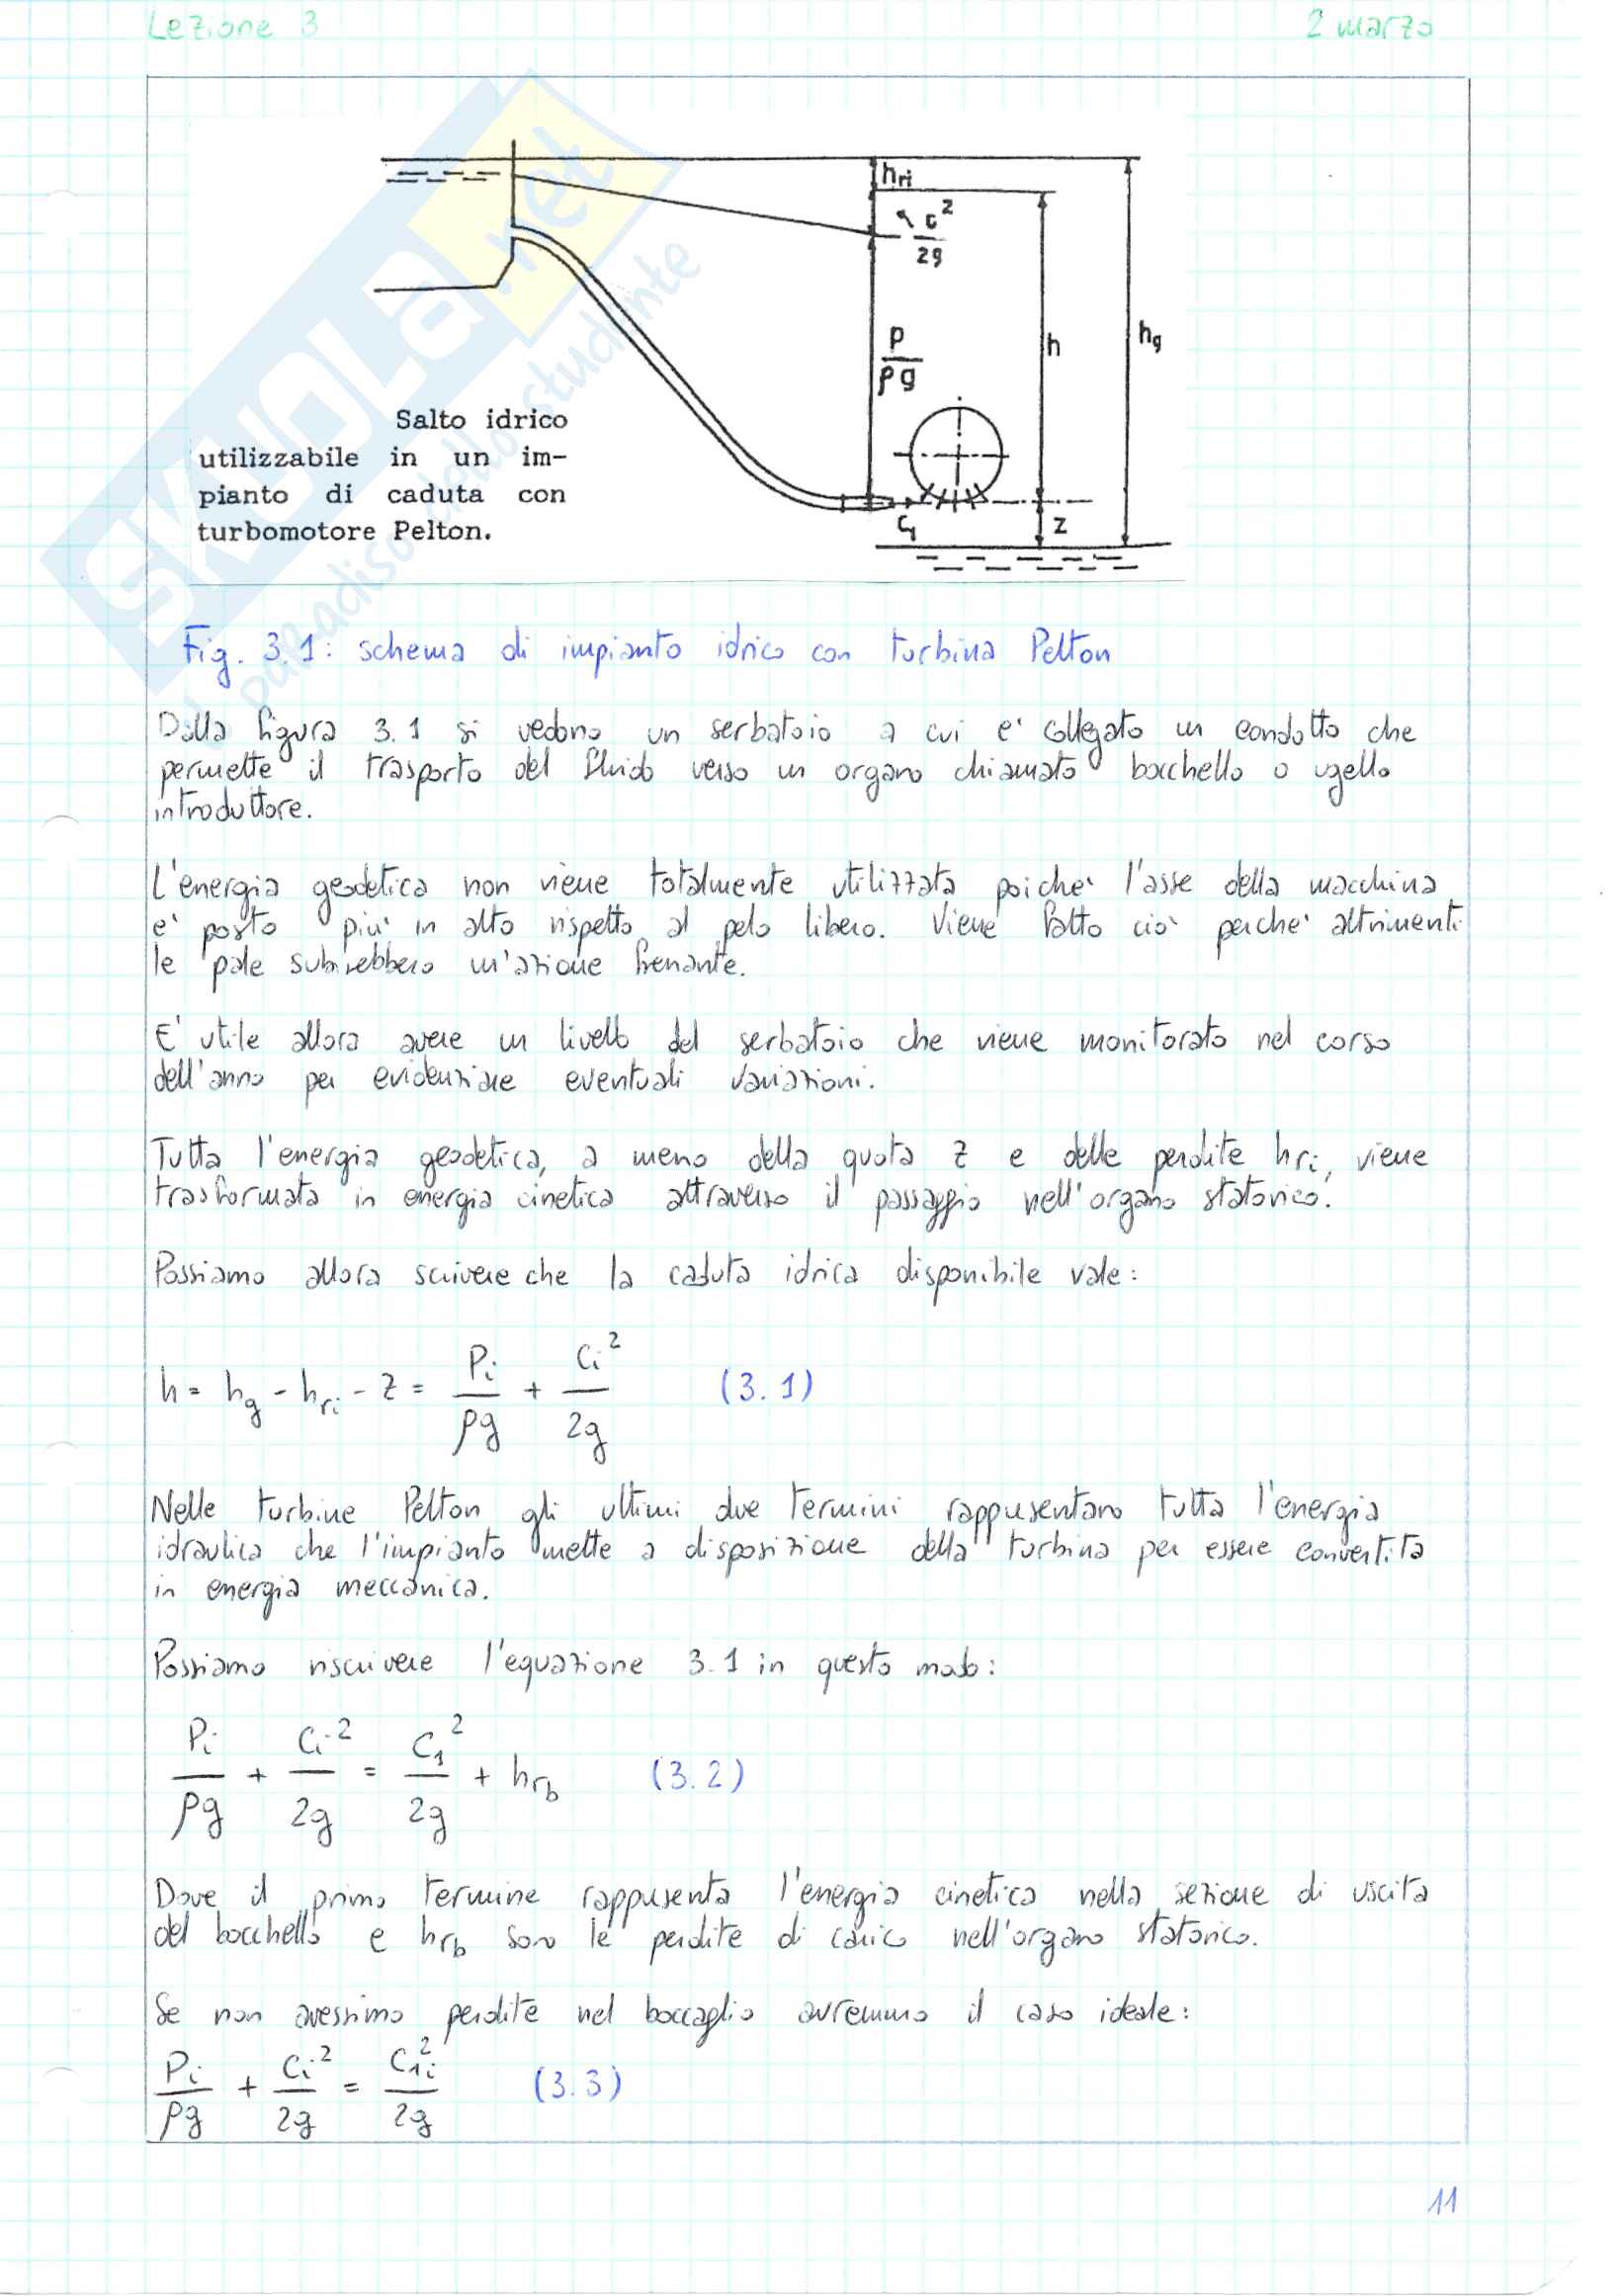 Lezione 3
2 marzo
SKUOLA.net
il paradiso dello studente
hri
c²/2g
p/ρg
h
hg
Salto idrico
utilizzabile in un im-
pianto di caduta con
turbomotore Pelton.
c₁
z
Fig. 3.1: schema di impianto idrico con turbina Pelton
Dalla figura 3.1 si vedono un serbatoio a cui e' collegato un condotto che
permette il trasporto del fluido verso un organo chiamato bocchello o ugello
introduttore.
L'energia geodetica non viene totalmente utilizzata poiche' l'asse della macchina
e' posto piu' in alto rispetto al pelo libero. Viene fatto cio' perche' altrimenti
le pale subirebbero un'azione frenante.
E' utile allora avere un livello del serbatoio che viene monitorato nel corso
dell'anno per evidenziare eventuali variazioni.
Tutta l'energia geodetica, a meno della quota z e delle perdite hri, viene
trasformata in energia cinetica attraverso il passaggio nell'organo statorico.
Possiamo allora scrivere che la caduta idrica disponibile vale:
h = hg - hri - z = Pi/ρg + Ci²/2g (3.1)
Nelle turbine Pelton gli ultimi due termini rappresentano tutta l'energia
idraulica che l'impianto mette a disposizione della turbina per essere convertita
in energia meccanica.
Possiamo riscrivere l'equazione 3.1 in questo modo:
Pi/ρg + Ci²/2g = C₁²/2g + hrb (3.2)
Dove il primo termine rappresenta l'energia cinetica nella sezione di uscita
del bocchello e hrb sono le perdite di carico nell'organo statorico.
Se non avessimo perdite nel boccaglio avremmo il caso ideale:
Pi/ρg + Ci²/2g = C₁i²/2g (3.3)
11